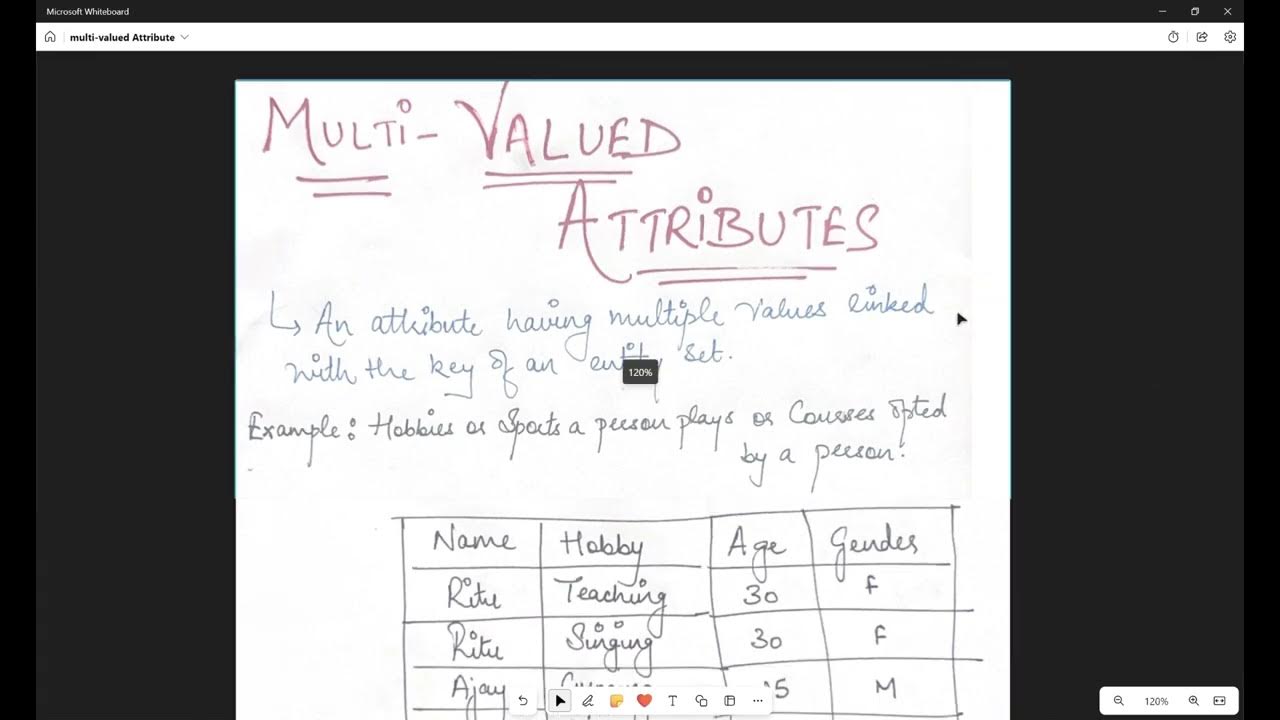 Microsoft Whiteboard
multi-valued Attribute
MULTi- VALUED
ATTRiBUTES
An attribute having multiple values linked
with the key of an entity set.
120%
Example: Hobbies or Sports a person plays or Courses opted
by a person.
Name Hobby Age Gender
Ritu Teaching 30 F
Ritu Singing 30 F
Ajay M
120%